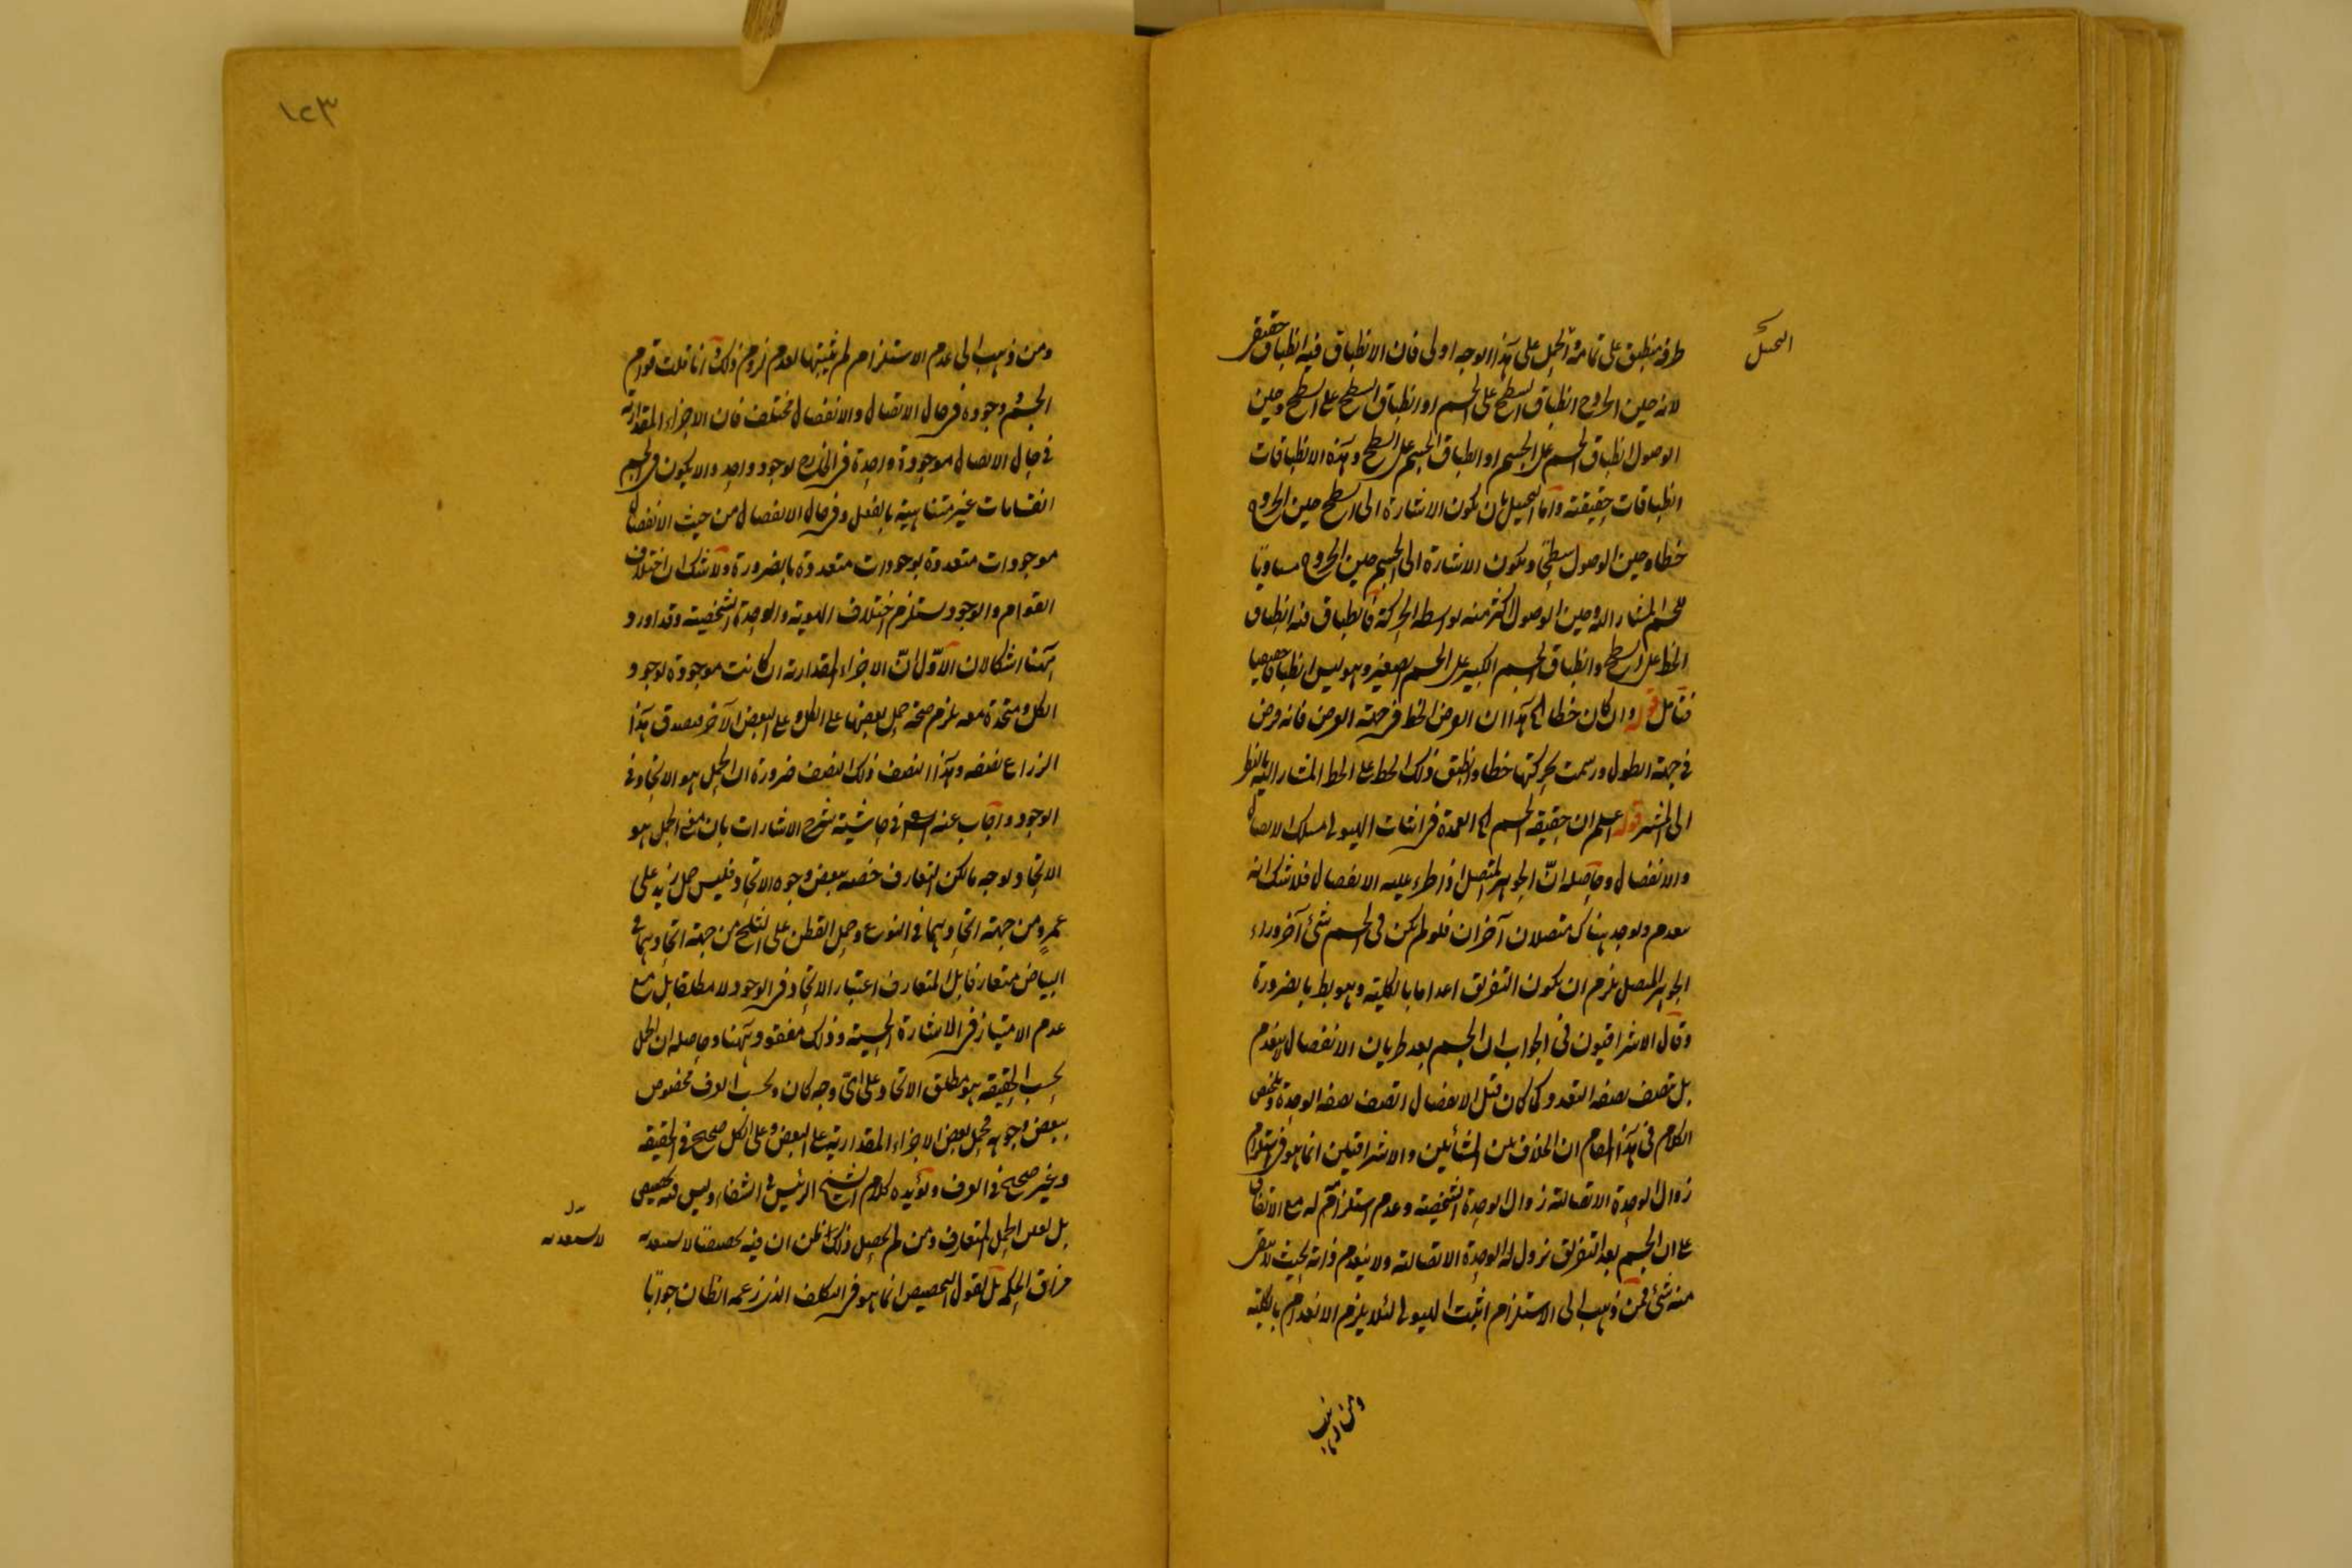 طرفه منطبق على تمامه والحمل على هذا الوجه اولى فان الانطباق فيه انطباق حقيقى
لانه حين الخروج انطباق السطح على الجسم او انطباق السطح على السطح وحين
الوصول انطباق الجسم على الجسم او انطباق الجسم على السطح وهذه الانطباقات
انطباقات حقيقته واما التحيل بان يكون الاشارة الى السطح حين الخروج
خطا وحين الوصول سطحا ويكون الاشارة الى الجسم حين الخروج مساويا
للجسم المشار اليه وحين الوصول اكثر منه بواسطه الحركة فانطباق فيه انطباق
الخط على السطح وانطباق الجسم الكبير على الجسم الصغير وهو ليس انطباقا حقيقيا
فتامل قوله وان كان خطا الخ هذا ان الخط فى جهة العرض فانه فرض
فى جهة الطول ورسمت بحركتها خطا وانطبق ذلك الخط على الخط المشار اليه بالنظر
الى المشير قوله اعلم ان حقيقة الجسم الخ العمدة فى اثبات الهيولى مسلك الاتصال
والانفصال وحاصله انّ الجوهر المتصل اذا طرء عليه الانفصال فلا شك انه
ينعدم ويوجد هناك متصلان آخران فلو لم يكن فى الجسم شئ آخر وراء
الجوهر المتصل يلزم ان يكون التفريق اعداما بالكلية وهو بط بالضرورة
وقال الاشراقيون فى الجواب ان الجسم بعد طريان الانفصال لا ينعدم
بل يتصف بصفة التعدد كما كان قبل الانفصال اتصف بصفة الوحدة وتلخيص
الكلام فى هذا المقام ان الخلاف بين المشائين والاشراقيين انما هو فى استلزام
زوال الوحدة الاتصالية زوال الوحدة الشخصية وعدم استلزامه له مع الاتفاق
على ان الجسم بعد التفريق يزول له الوحدة الاتصالية ولا ينعدم ذاته بحيث لا يبقى
منه شئ فمن ذهب الى الاستلزام اثبت الهيولى لئلا يلزم الانعدام بالكلية
ومن ذهب
١٢٣
ومن ذهب الى عدم الاستلزام لم يثبتها لعدم لزوم ذلك وانا قلت قوام
الجسم ووجوده فى حال الاتصال والانفصال مختلف فان الاجزاء المقدارية
فى حال الاتصال موجودة واحدة فى الخارج بوجود واحد والا يكون فى الجسم
انقسامات غير متناهية بالفعل وفى حال الانفصال من حيث الانفصال
موجودات متعددة بوجودات متعددة بالضرورة ولا شك ان اختلاف
القوام والوجود يستلزم اختلاف الهوية والوحدة الشخصية وقد اورد
ههنا اشكالان الاوّل انّ الاجزاء المقدارية ان كانت موجودة بوجود
الكل ومتحدة معه يلزم صحة حمل بعضها على الكل وعلى البعض الآخر فيصدق هذا
الذراع نصفه وهذا النصف ذلك النصف ضرورة ان الحمل هو الاتحاد فى
الوجود واجاب عنه فى حاشية شرح الاشارات بان معنى الحمل هو
الاتحاد بوجه ما لكن التعارف خصه ببعض وجوه الاتحاد فليس حمل زيد على
عمرو من جهة اتحادهما فى النوع وحمل القطن على الثلج من جهة اتحادهما فى
البياض متعارفا بل المتعارف اعتبار الاتحاد فى الوجود لا مطلقا بل مع
عدم الامتياز فى الاشارة الحسية وذلك مفقود ههنا وحاصله ان الحمل
بحسب الحقيقة هو مطلق الاتحاد على اىّ وجه كان وبحسب العرف مخصوص
ببعض وجوهه فحمل بعض الاجزاء المقدارية على البعض وعلى الكل صحيح فى الحقيقة
وغير صحيح فى العرف ويؤيده كلام الشيخ الرئيس فى الشفاء وليس فيه تخصيص
بل الحمل المتعارف ومن لم يحصل ذلك ظن ان فيه تخصيصا لا يستعد به
مذاق الحكمة بل نقول التخصيص انما هو فى التكلف الذى زعمه الظان جوابا